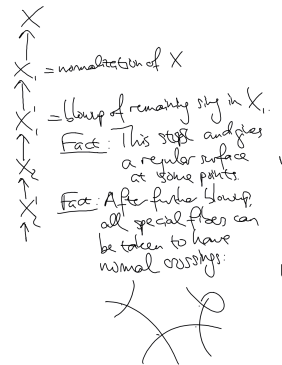 X
X₁ = normalization of X
X₁' = blowup of remaining sing in X₁.
Fact: This stops and gives
a regular surface
at some point.
X₂
Fact: After further blowup,
X₂'
all special fibers can
be taken to have
normal crossings: